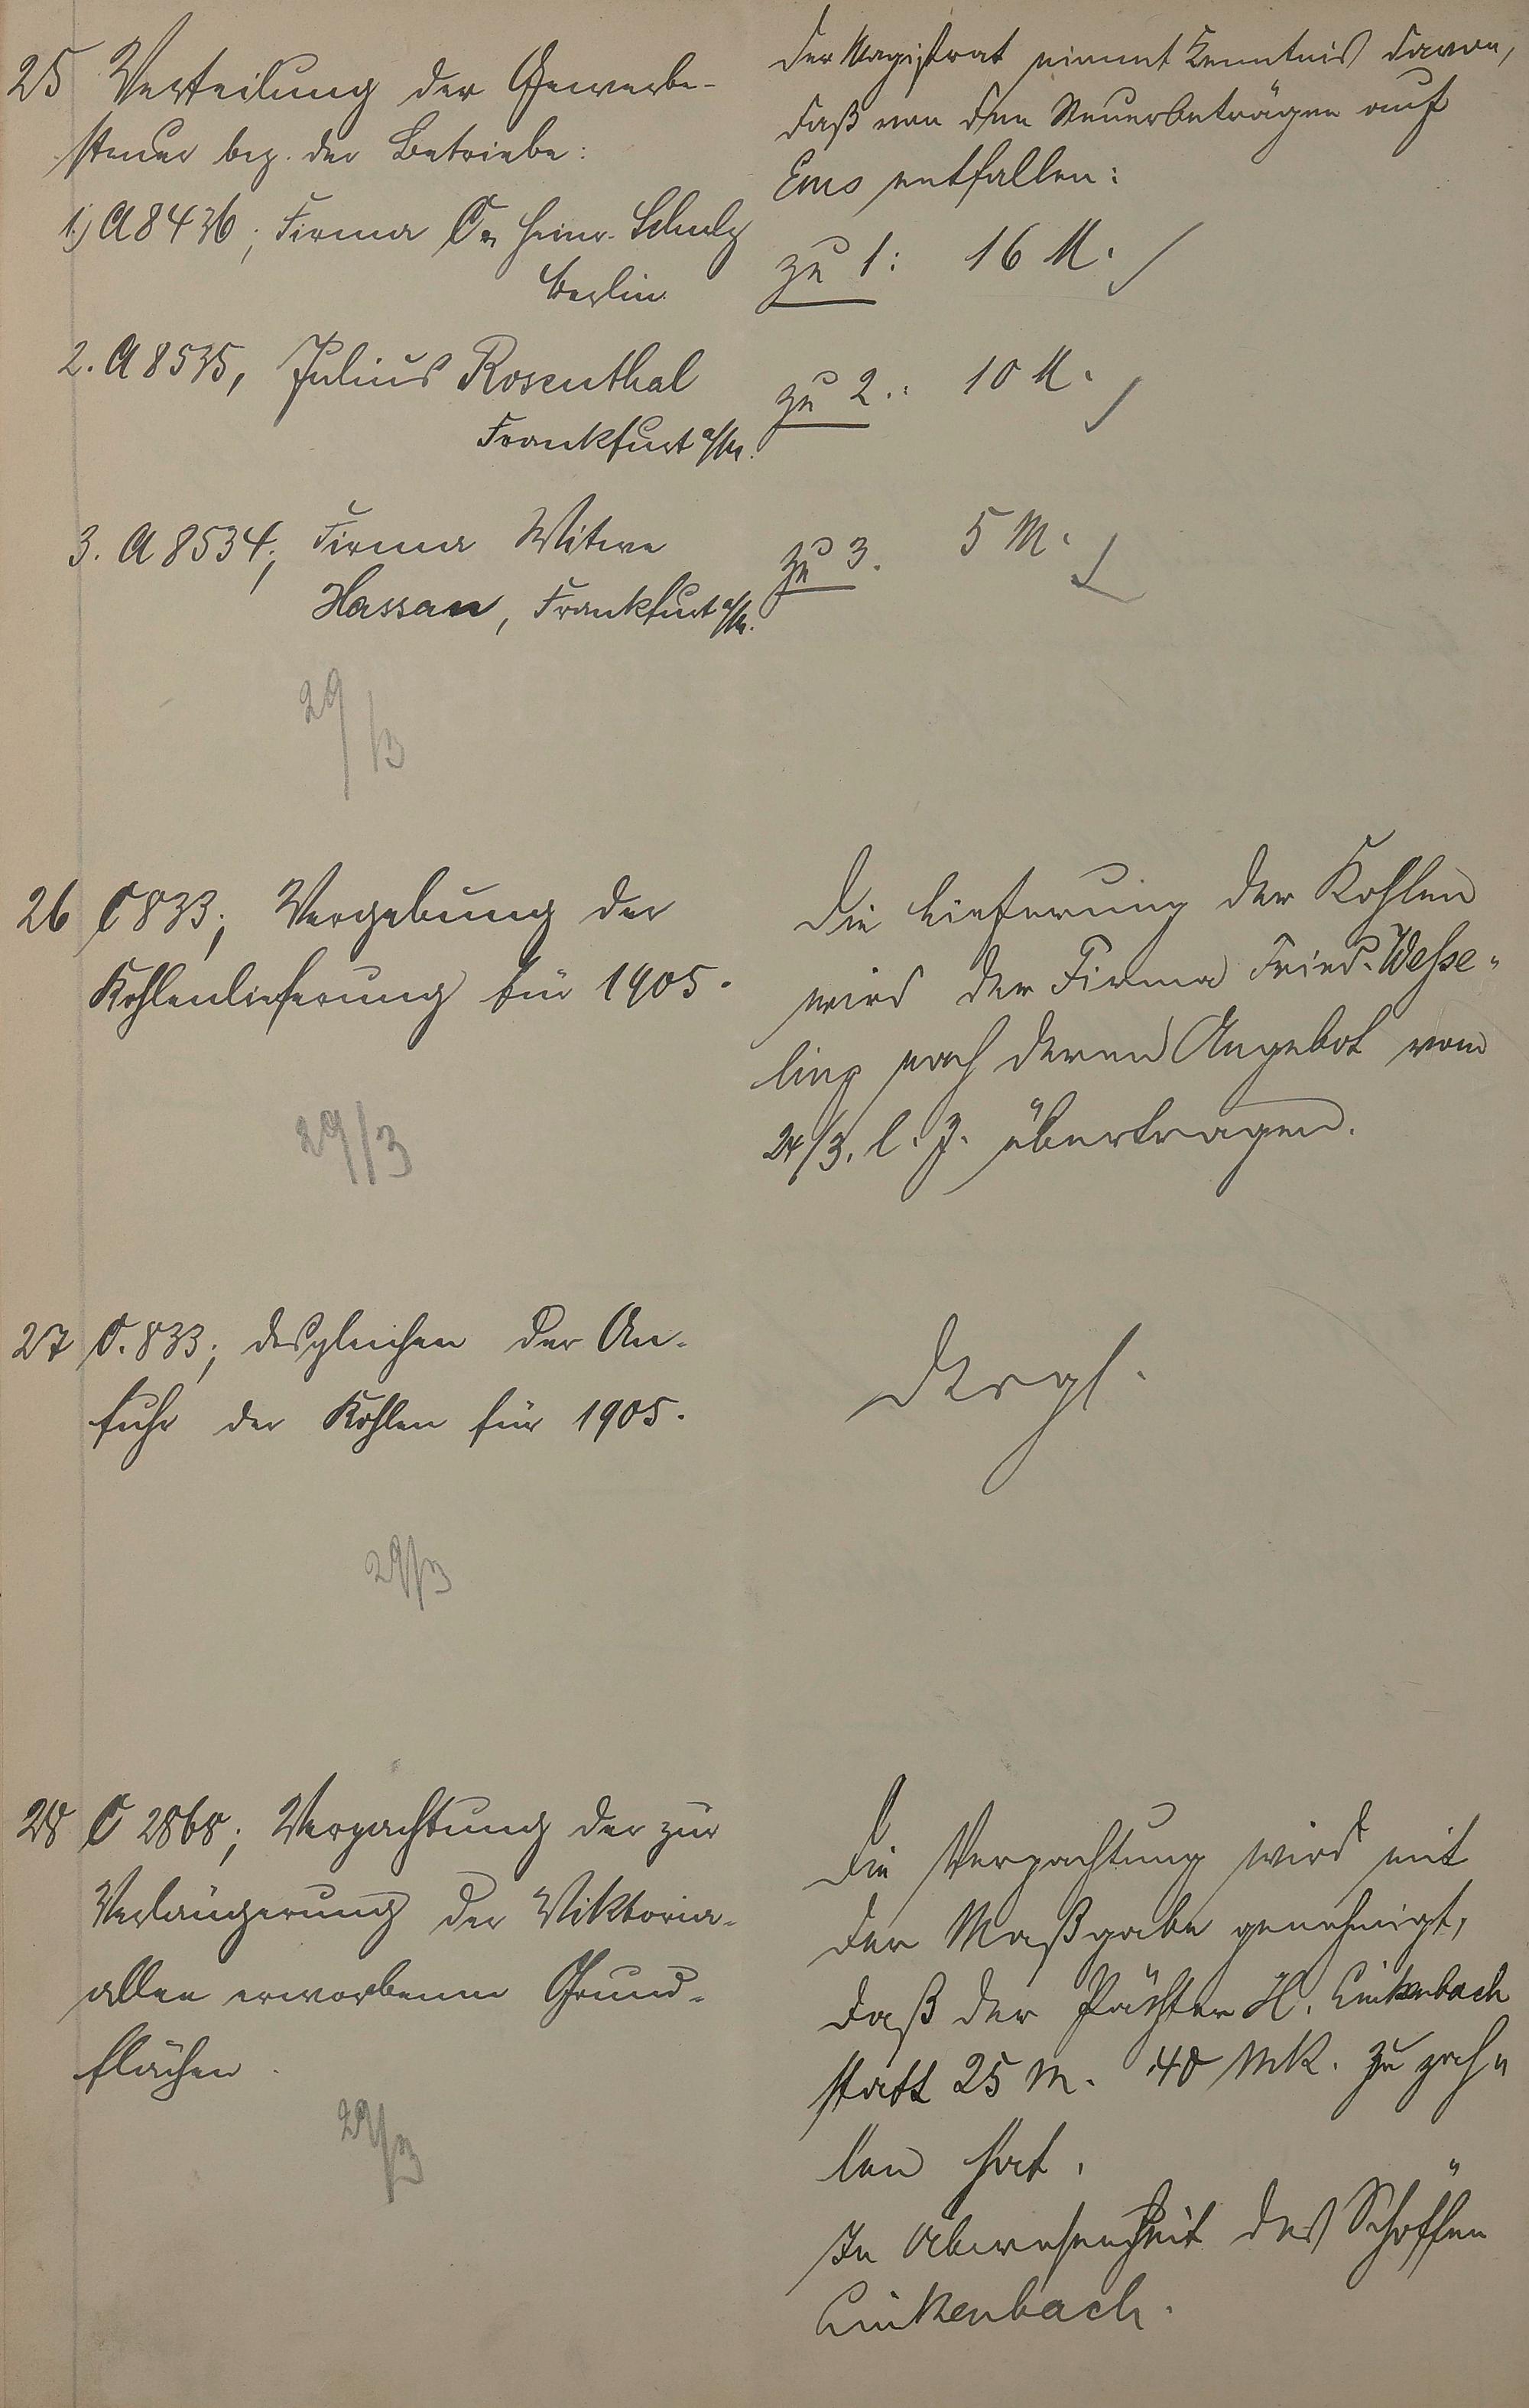 25 Verteilung der Gewerbe-
steuer bez. der Betriebe:
1.) A 8436; Firma C. Heinr. Schulz
Berlin.
2. A 8535, Julius Rosenthal
Frankfurt a/M.
3. A 8534; Firma Witwe
Hassan, Frankfurt a/M.
29/3
Der Magistrat nimmt Kenntnis davon,
daß von den Steuerbeträgen auf
Ems entfallen:
zu 1: 16 M.
zu 2.: 10 M.
zu 3. 5 M.
26 C 833; Vergebung der
Kohlenlieferung für 1905.
29/3
Die Lieferung der Kohlen
wird der Firma Fried. Wesse-
ling nach deren Angebot vom
24/3. l. J. übertragen.
27 C. 833; desgleichen der An-
fuhr der Kohlen für 1905.
29/3
Desgl.
28 C 2868; Verpachtung der zur
Verlängerung der Viktoria-
allee erworbenen Grund-
flächen.
29/3
Die Verpachtung wird mit
der Maßgabe genehmigt,
daß der Pächter H. Linkenbach
statt 25 M. 40 Mk. zu zah-
len hat.
In Abwesenheit des Schöffen
Linkenbach.